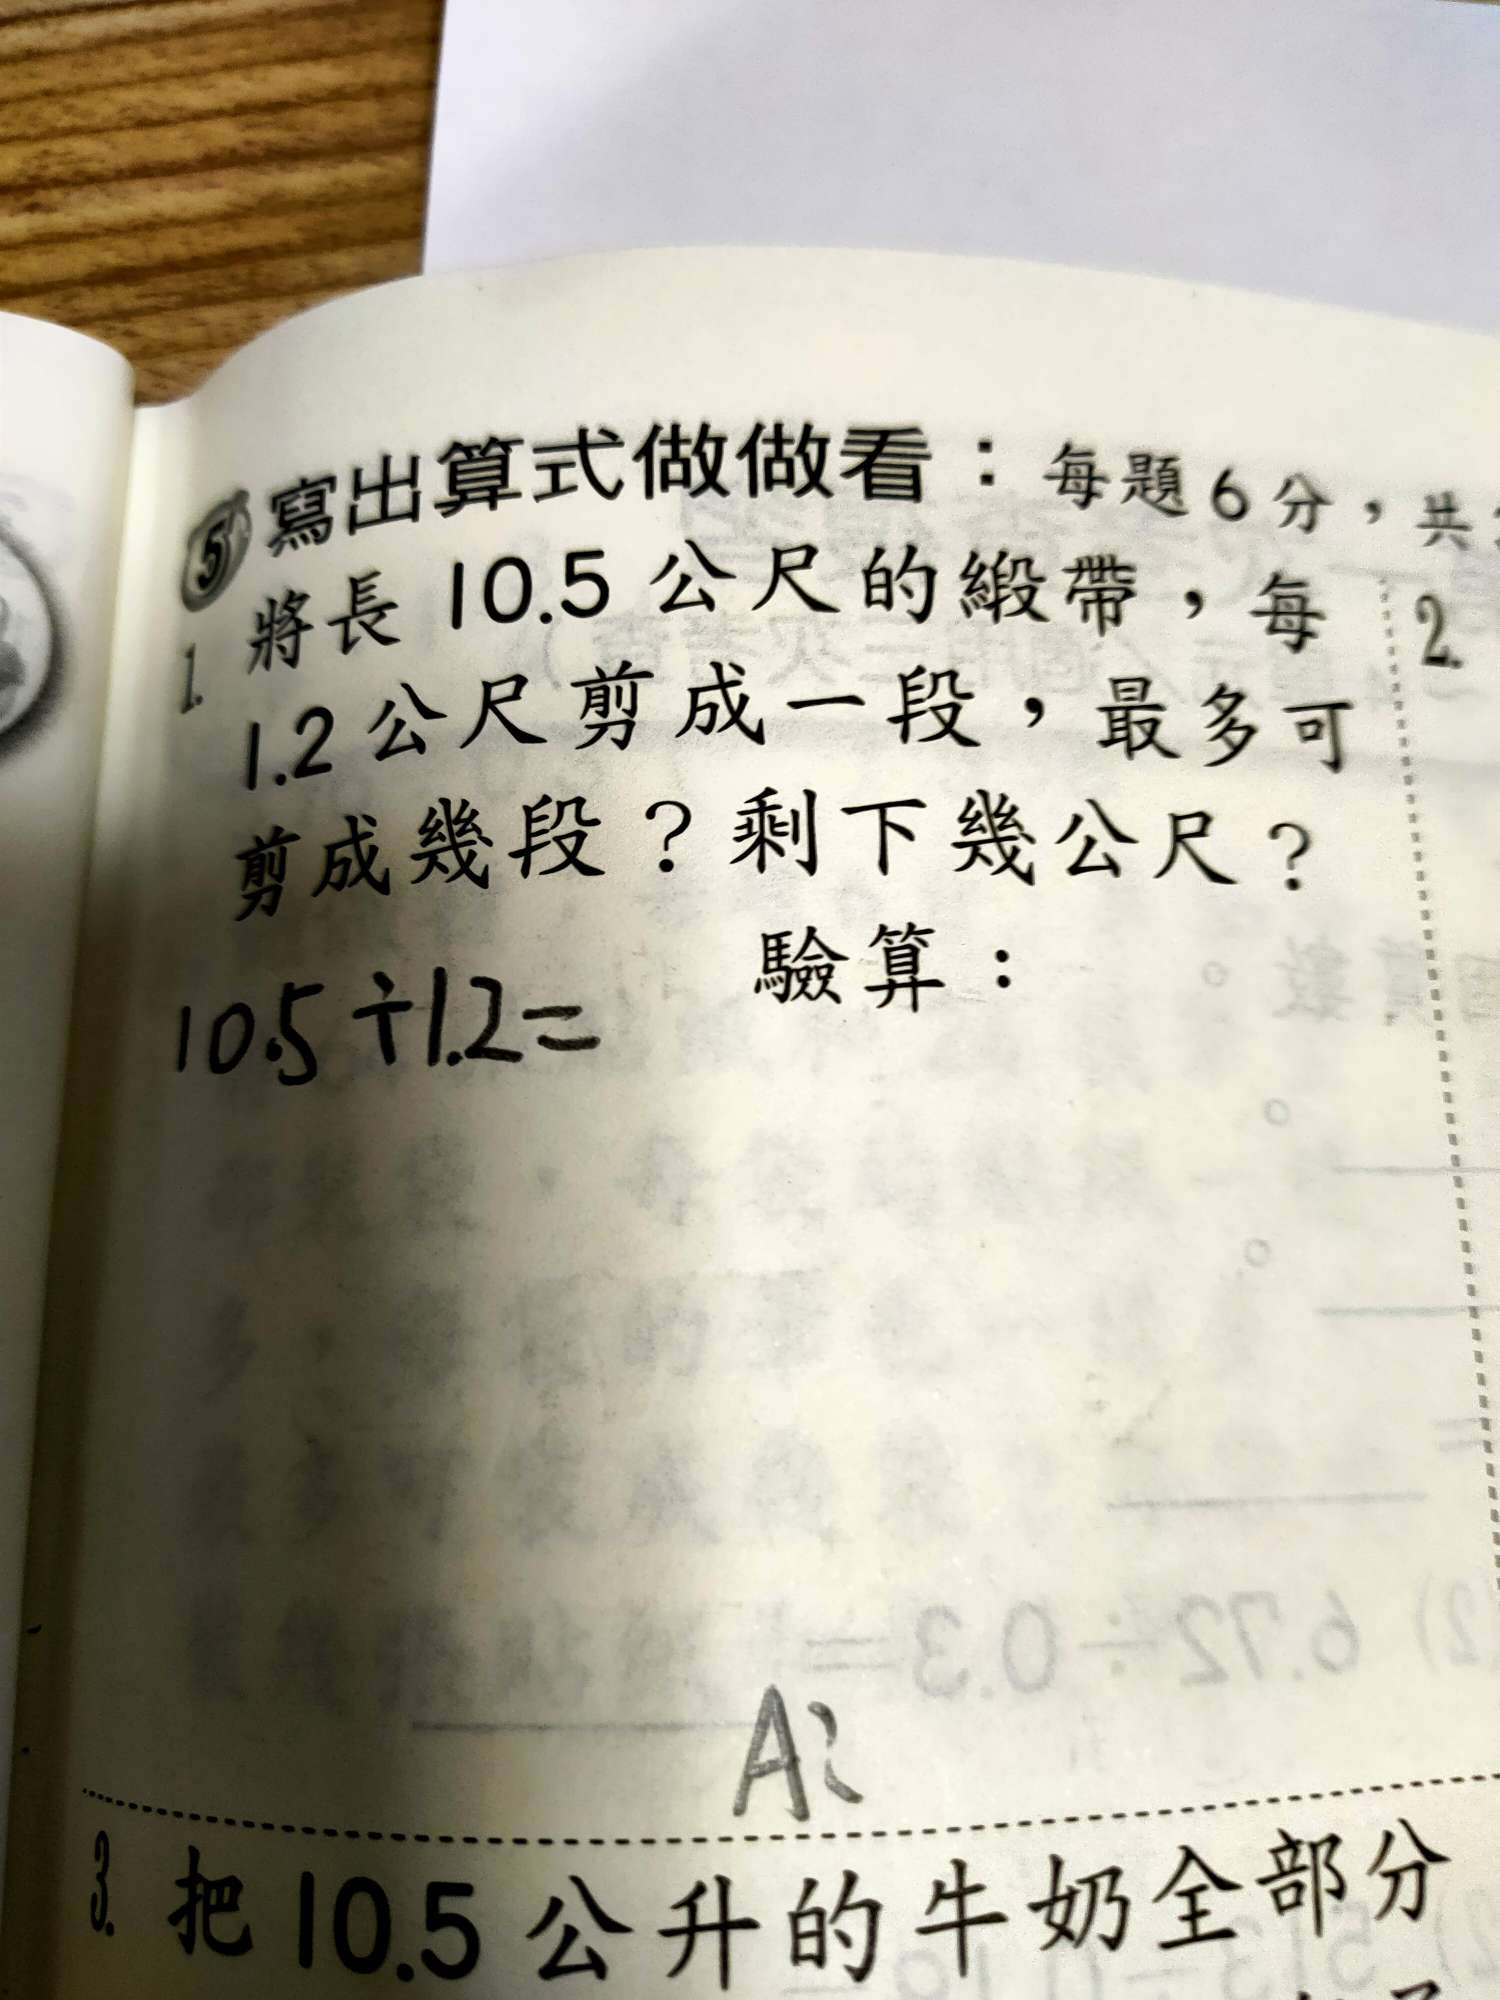 5 寫出算式做做看：每題6分，共
1. 將長 10.5 公尺的緞帶，每
1.2 公尺剪成一段，最多可
剪成幾段？剩下幾公尺？
驗算：
10.5÷1.2=
A:
2.
3. 把 10.5 公升的牛奶全部分